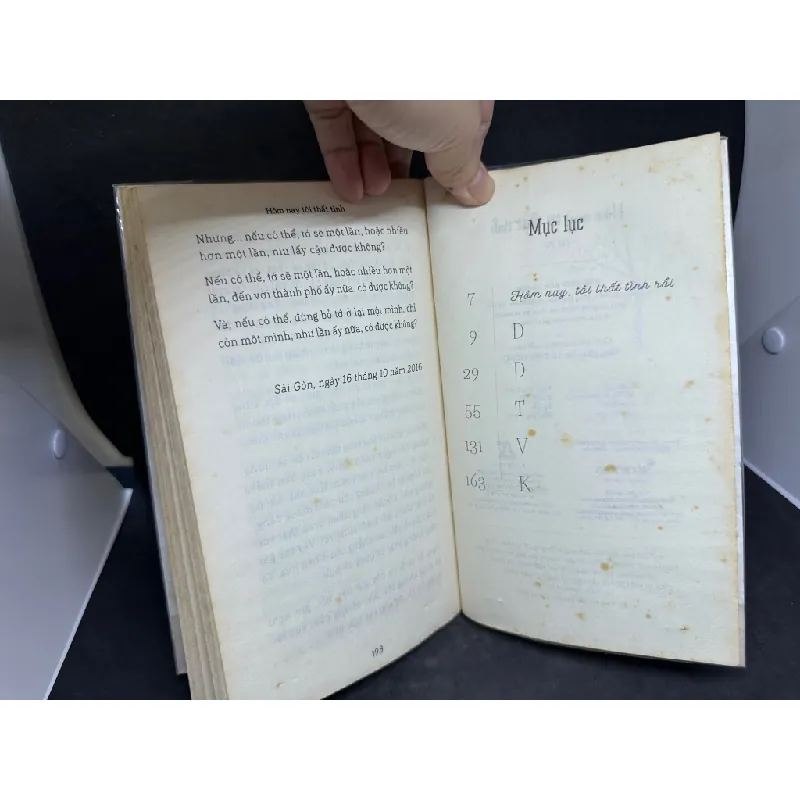 Hôm nay tôi thất tình
Nhưng... nếu có thể, tớ sẽ một lần, hoặc nhiều
hơn một lần, níu lấy cậu được không?
Nếu có thể, tớ sẽ một lần, hoặc nhiều hơn một
lần, đến với thành phố ấy nữa, có được không?
Và, nếu có thể, đừng bỏ tớ ở lại một mình, chỉ
còn một mình, như lần ấy nữa, có được không?
Sài Gòn, ngày 16 tháng 10 năm 2016
193
Mục lục
7 Hôm nay, tôi thất tình rồi
9 D
29 D
55 T
131 V
163 K